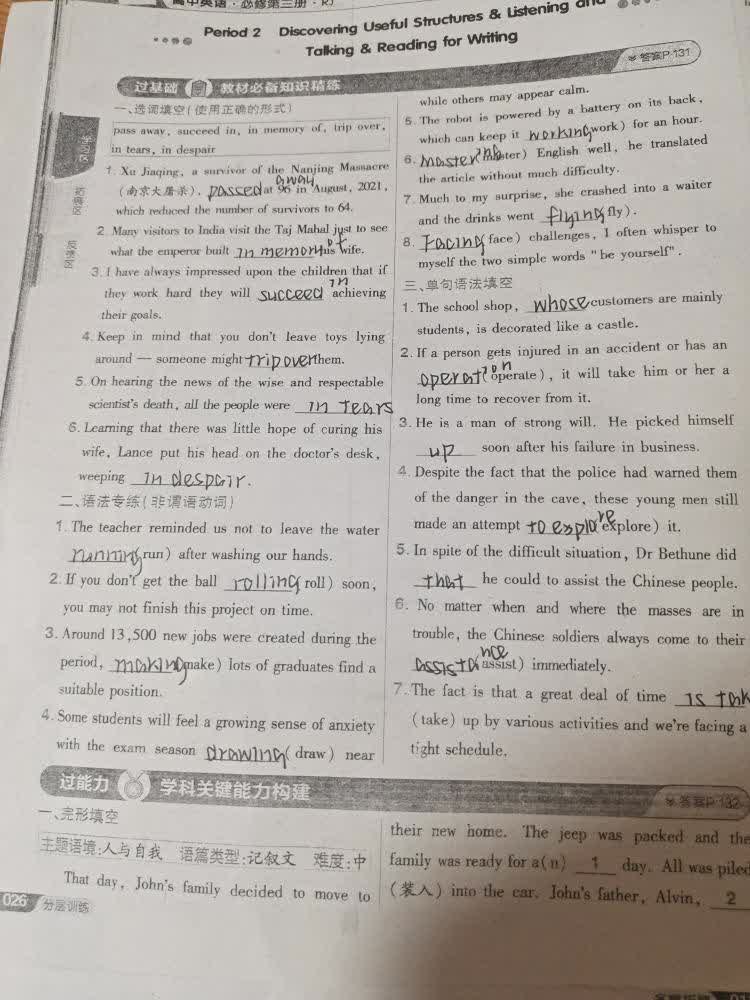 高中英语·必修第三册·RJ
Period 2 Discovering Useful Structures & Listening and
Talking & Reading for Writing
过基础 教材必备知识精练
答案P.131
一、选词填空(使用正确的形式)
pass away, succeed in, in memory of, trip over,
in tears, in despair
1. Xu Jiaqing, a survivor of the Nanjing Massacre
away
(南京大屠杀), passed at 96 in August, 2021,
which reduced the number of survivors to 64.
2. Many visitors to India visit the Taj Mahal just to see
what the emperor built in memory of his wife.
3. I have always impressed upon the children that if
they work hard they will succeed in achieving
their goals.
4. Keep in mind that you don't leave toys lying
around — someone might trip over them.
5. On hearing the news of the wise and respectable
scientist's death, all the people were in tears
6. Learning that there was little hope of curing his
wife, Lance put his head on the doctor's desk,
weeping in despair.
二、语法专练(非谓语动词)
1. The teacher reminded us not to leave the water
running (run) after washing our hands.
2. If you don't get the ball rolling (roll) soon,
you may not finish this project on time.
3. Around 13,500 new jobs were created during the
period, making (make) lots of graduates find a
suitable position.
4. Some students will feel a growing sense of anxiety
with the exam season drawing (draw) near
while others may appear calm.
5. The robot is powered by a battery on its back,
which can keep it working (work) for an hour.
6. Mastering (master) English well, he translated
the article without much difficulty.
7. Much to my surprise, she crashed into a waiter
and the drinks went flying (fly).
8. Facing (face) challenges, I often whisper to
myself the two simple words "be yourself".
三、单句语法填空
1. The school shop, whose customers are mainly
students, is decorated like a castle.
2. If a person gets injured in an accident or has an
operation (operate), it will take him or her a
long time to recover from it.
3. He is a man of strong will. He picked himself
up soon after his failure in business.
4. Despite the fact that the police had warned them
of the danger in the cave, these young men still
made an attempt to explore (explore) it.
5. In spite of the difficult situation, Dr Bethune did
that he could to assist the Chinese people.
6. No matter when and where the masses are in
trouble, the Chinese soldiers always come to their
assistance (assist) immediately.
7. The fact is that a great deal of time is tak
(take) up by various activities and we're facing a
tight schedule.
过能力 学科关键能力构建
答案P.132
一、完形填空
主题语境:人与自我 语篇类型:记叙文 难度:中
That day, John's family decided to move to
their new home. The jeep was packed and the
family was ready for a(n) 1 day. All was piled
(装入) into the car. John's father, Alvin, 2
026 分层训练